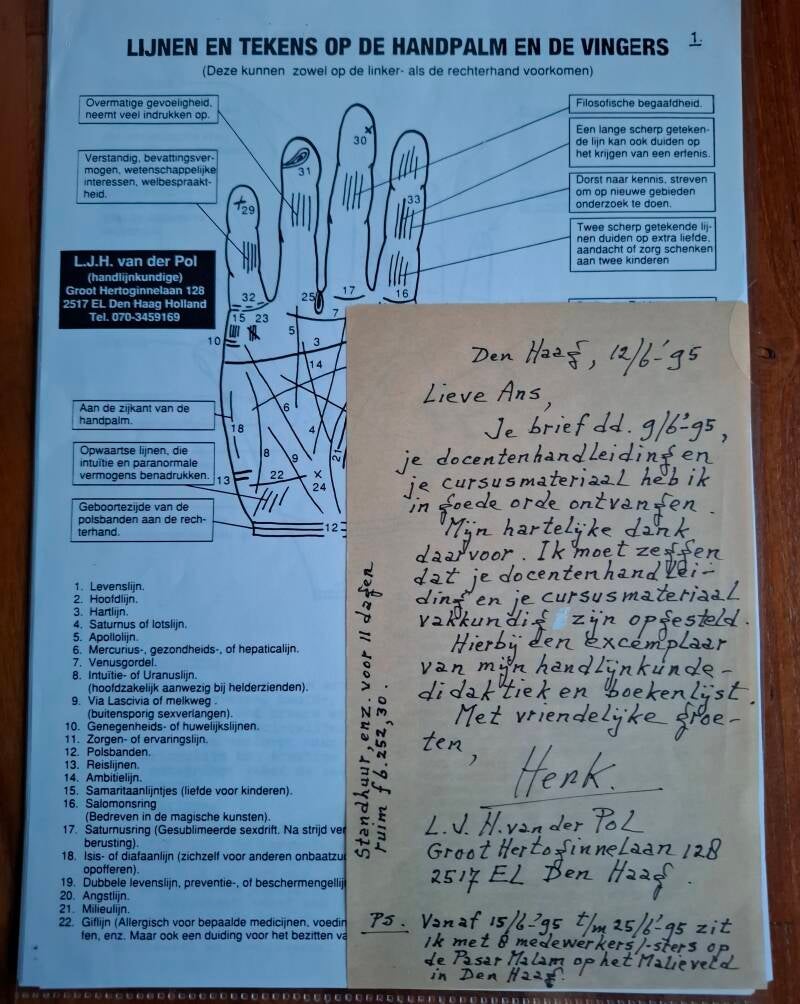 LIJNEN EN TEKENS OP DE HANDPALM EN DE VINGERS
1.
(Deze kunnen zowel op de linker- als de rechterhand voorkomen)
Overmatige gevoeligheid,
neemt veel indrukken op.
Verstandig, bevattingsver-
mogen, wetenschappelijke
interessen, welbespraakt-
heid.
L.J.H. van der Pol
(handlijnkundige)
Groot Hertoginnelaan 128
2517 EL Den Haag Holland
Tel. 070-3459169
Filosofische begaafdheid.
Een lange scherp geteken-
de lijn kan ook duiden op
het krijgen van een erfenis.
Dorst naar kennis, streven
om op nieuwe gebieden
onderzoek te doen.
Twee scherp getekende lij-
nen duiden op extra liefde,
aandacht of zorg schenken
aan twee kinderen
30
31
29
33
32
25
17
16
15 23
7
5
10
3
14
6
18
4
8
9
21
22
13
24
12
Aan de zijkant van de
handpalm.
Opwaartse lijnen, die
intuïtie en paranormale
vermogens benadrukken.
Geboortezijde van de
polsbanden aan de rech-
terhand.
1. Levenslijn.
2. Hoofdlijn.
3. Hartlijn.
4. Saturnus of lotslijn.
5. Apollolijn.
6. Mercurius-, gezondheids-, of hepaticalijn.
7. Venusgordel.
8. Intuïtie- of Uranuslijn.
(hoofdzakelijk aanwezig bij helderzienden).
9. Via Lascivia of melkweg .
(buitensporig sexverlangen).
10. Genegenheids- of huwelijkslijnen.
11. Zorgen- of ervaringslijn.
12. Polsbanden.
13. Reislijnen.
14. Ambitielijn.
15. Samaritaanlijntjes (liefde voor kinderen).
16. Salomonsring
(Bedreven in de magische kunsten).
17. Saturnusring (Gesublimeerde sexdrift. Na strijd
berusting).
18. Isis- of diafaanlijn (zichzelf voor anderen
opofferen).
19. Dubbele levenslijn, preventie-, of
20. Angstlijn.
21. Milieulijn.
22. Giflijn (Allergisch voor bepaalde medicijnen,
ten, enz. Maar ook een duiding voor het bezitten
Den Haag, 12/6-'95
Lieve Ans,
Je brief dd. 9/6-'95,
je docentenhandleiding en
je cursusmateriaal heb ik
in goede orde ontvangen.
Mijn hartelijke dank
daarvoor. Ik moet zeggen
dat je docentenhandlei-
ding en je cursusmateriaal
vakkundig zijn opgesteld.
Hierbij een excemplaar
van mijn handlijnkunde-
didaktiek en boekenlijst.
Met vriendelijke groe-
ten,
Henk.
L.J.H. van der Pol
Groot Hertoginnelaan 128
2517 EL Den Haag.
PS. Vanaf 15/6-'95 t/m 25/6-'95 zit
ik met 8 medewerkers/-sters op
de Pasar Malam op het Malieveld
in Den Haag.
Standhuur, enz. voor 11 dagen
ruim f 6.252,30.